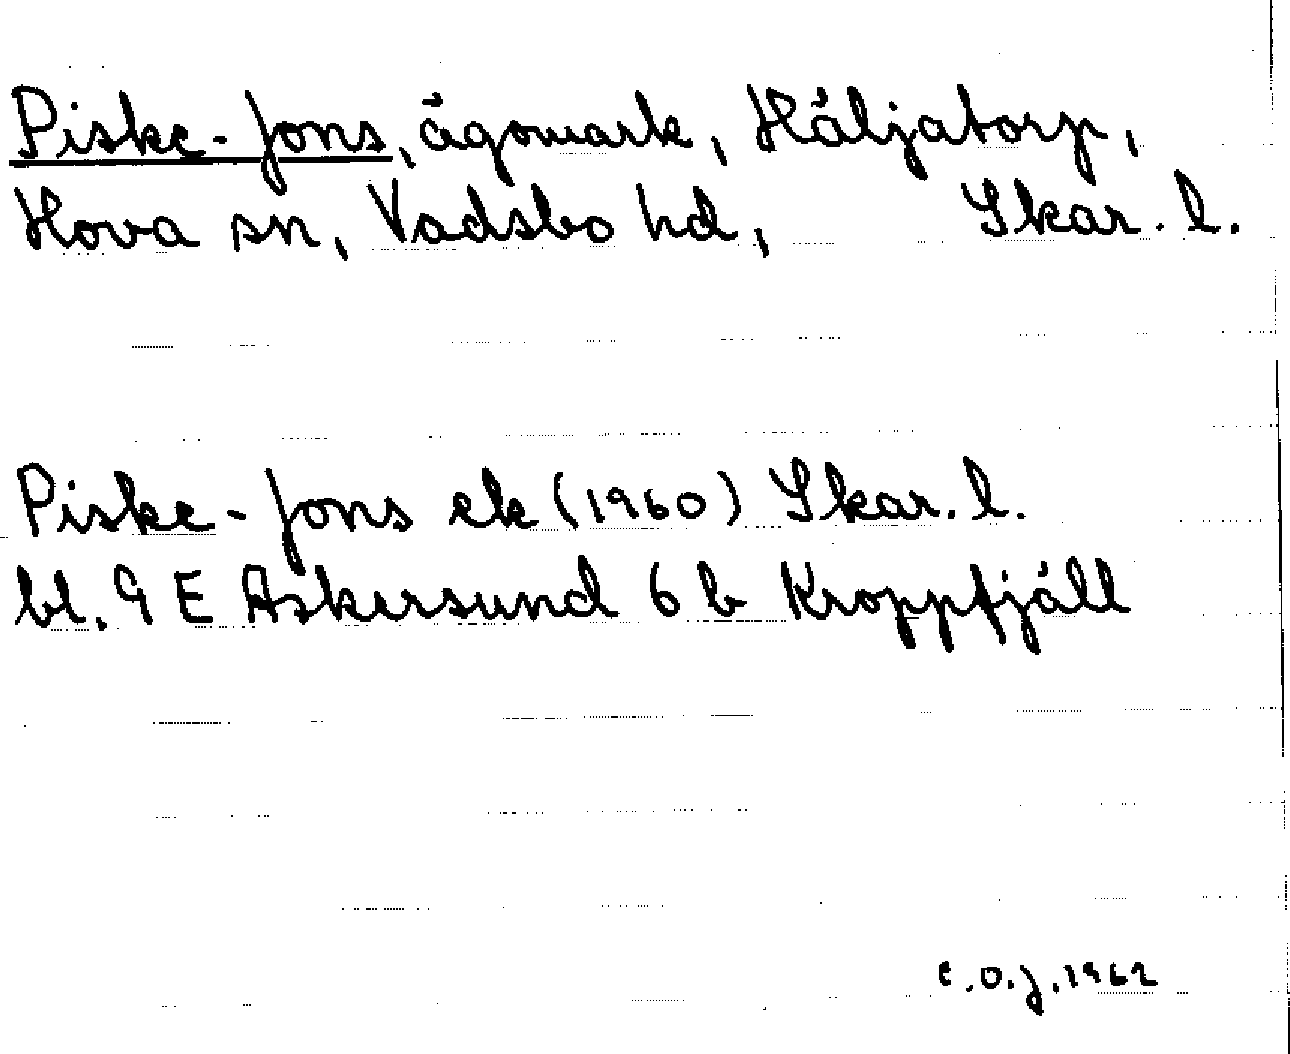 Piske-Jons, ägomark, Häljatorp,
Hova sn, Vadsbo hd, Skar. l.
Piske-Jons ek (1960) Skar. l.
bl. 9 E Askersund 6 b Kroppfjäll
C.O.J. 1962